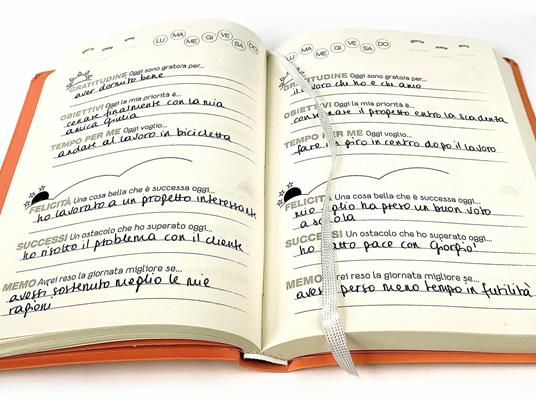 giorno mese anno
LU MA ME GI VE SA DO
GRATITUDINE Oggi sono grato/a per...
aver dormito bene
OBIETTIVI Oggi la mia priorità è...
cenare finalmente con la mia
amica Giulia
TEMPO PER ME Oggi voglio...
andare al lavoro in bicicletta
FELICITÀ Una cosa bella che è successa oggi...
ho lavorato a un progetto interessante
SUCCESSI Un ostacolo che ho superato oggi...
ho risolto il problema con il cliente
MEMO Avrei reso la giornata migliore se...
avessi sostenuto meglio le mie
ragioni
LU MA ME GI VE SA DO
giorno mese anno
GRATITUDINE Oggi sono grato/a per...
il lavoro che ho e chi amo
OBIETTIVI Oggi la mia priorità è...
il progetto entro la scadenza
TEMPO PER ME Oggi voglio...
fare un giro in centro dopo il lavoro
FELICITÀ Una cosa bella che è successa oggi...
mio figlio ha preso un buon voto
a scuola
SUCCESSI Un ostacolo che ho superato oggi...
ho fatto pace con Giorgio
MEMO Avrei reso la giornata migliore se...
avessi perso meno tempo in futilità